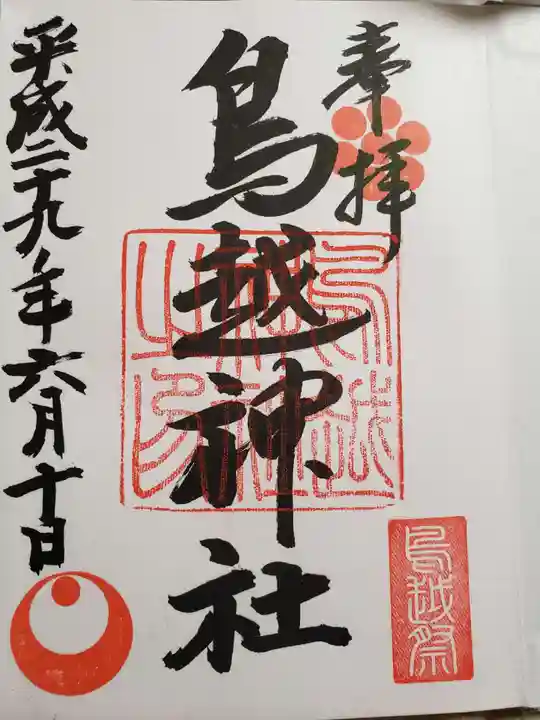 奉拝
鳥越神社
鳥越神社之印
鳥越祭
平成二十九年六月十日